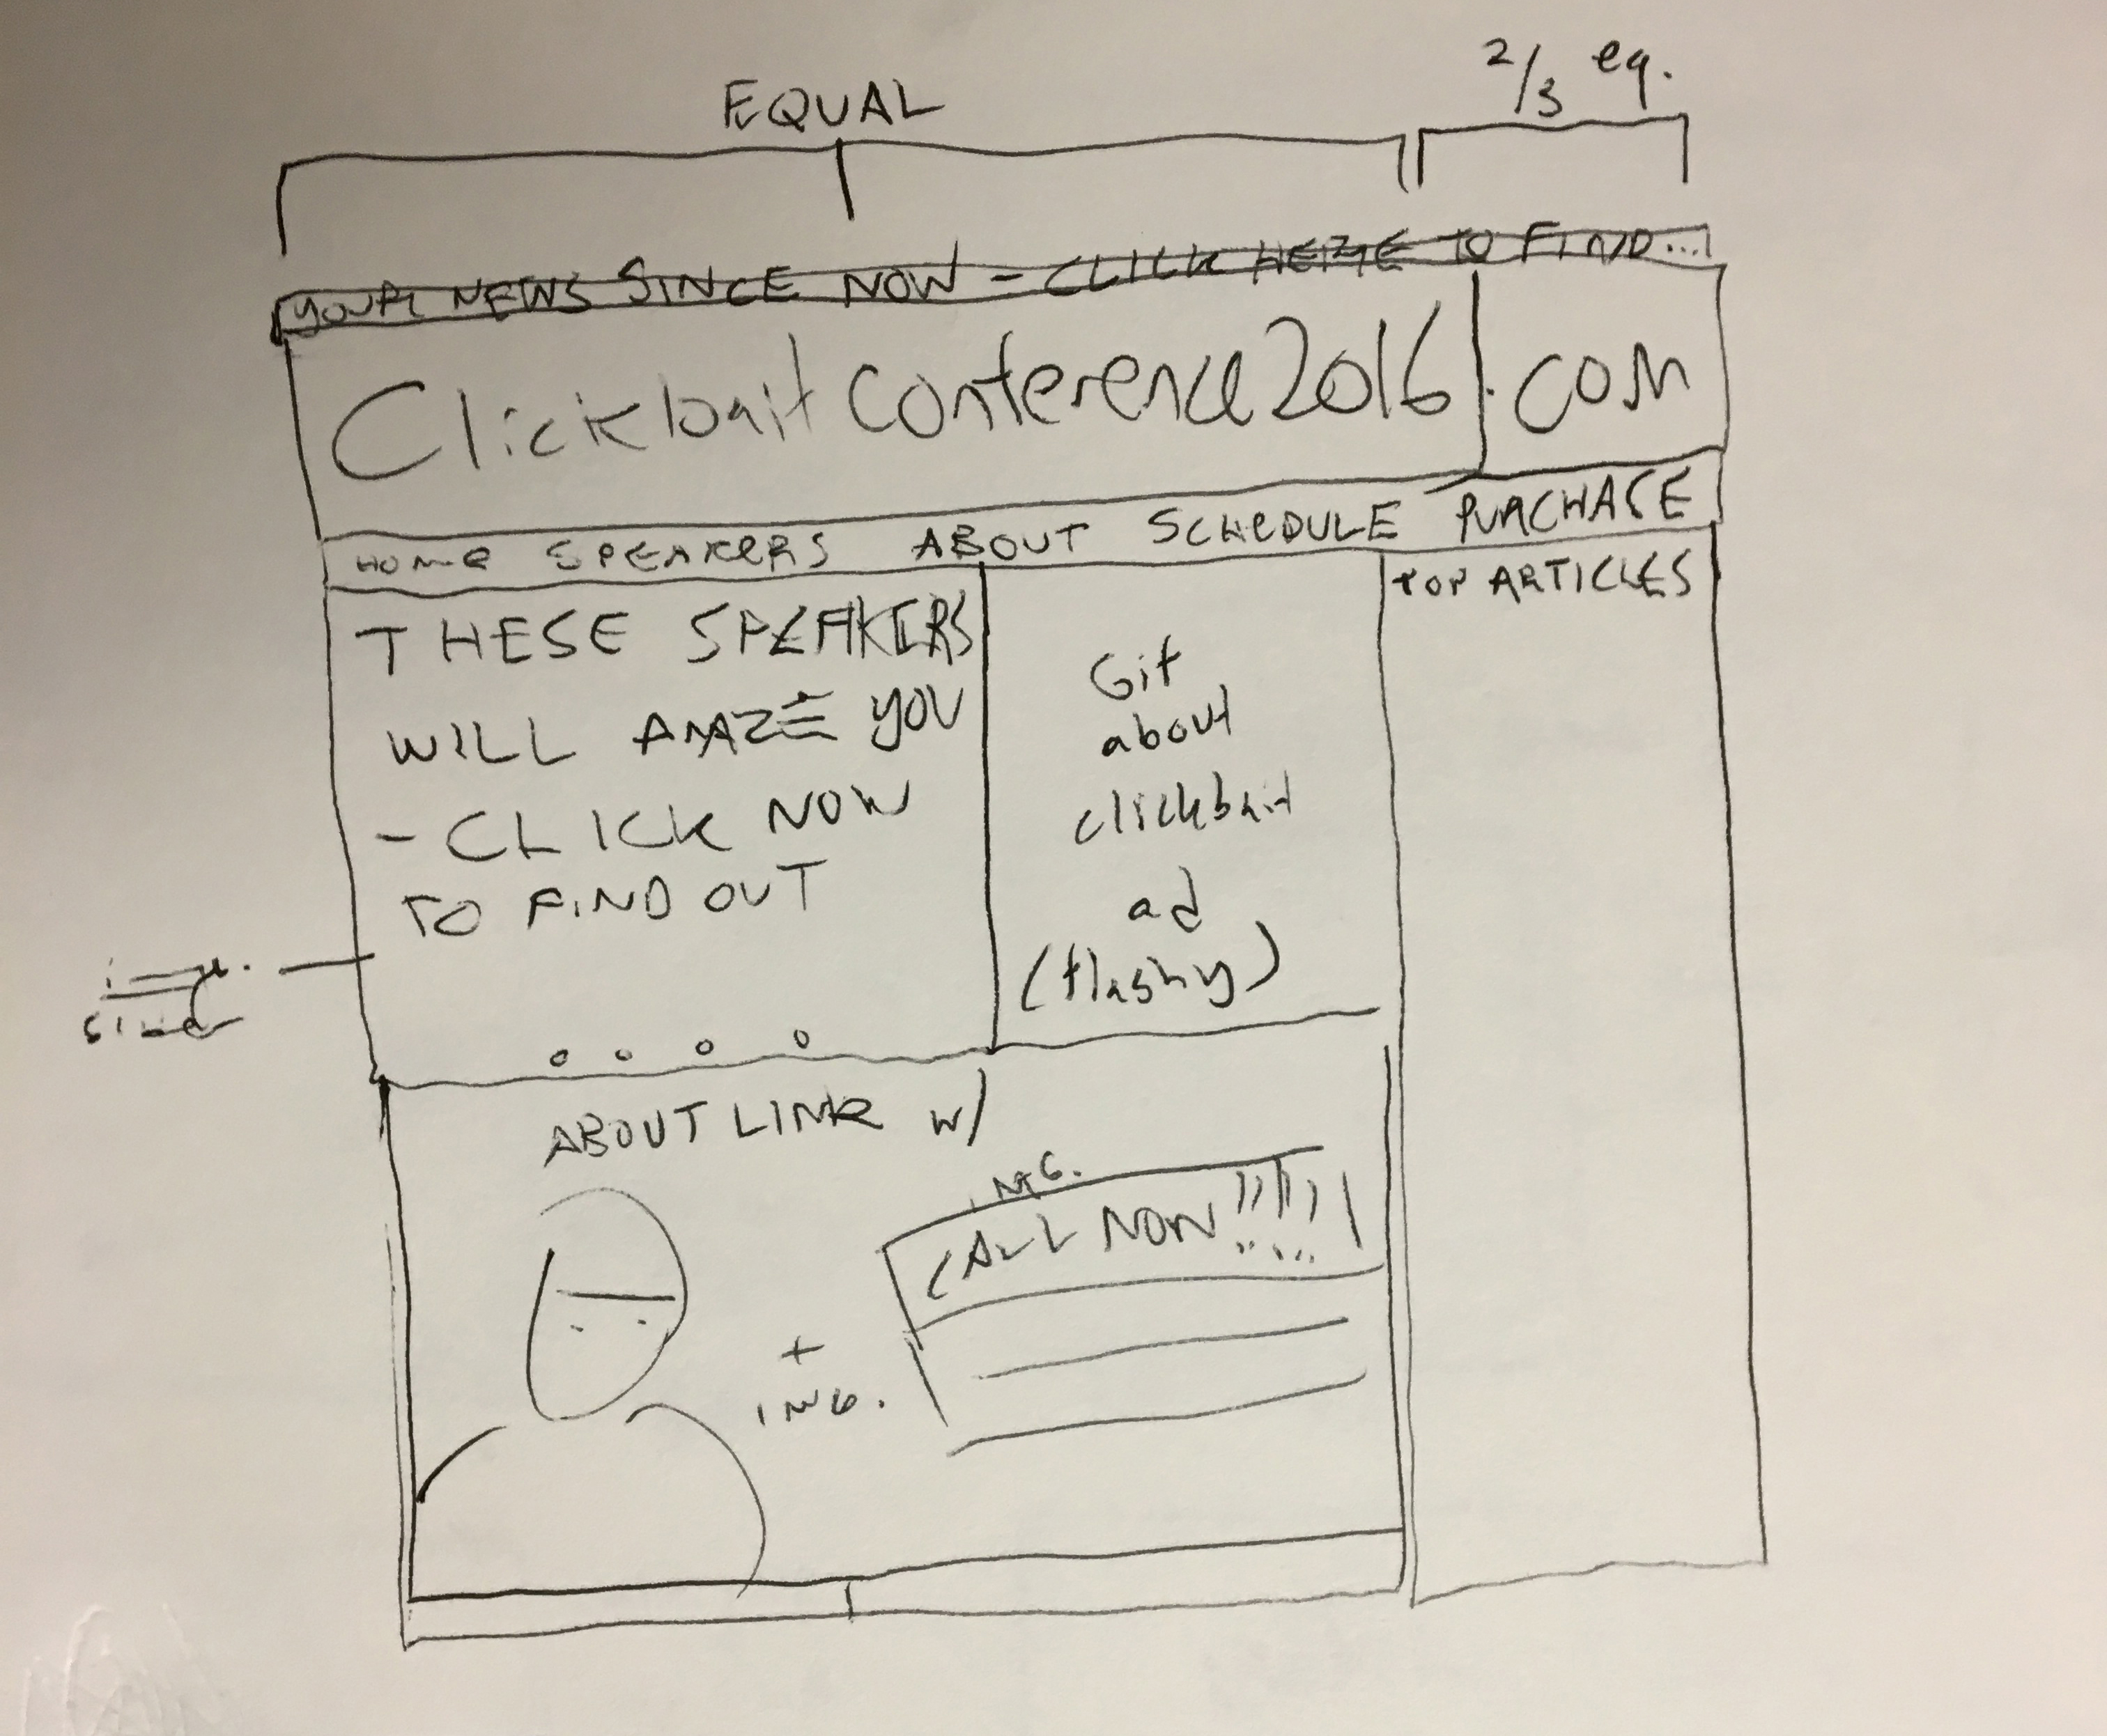 EQUAL
2/3 eq.
YOUR NEWS SINCE NOW - CLICK HERE TO FIND...
Clickbait Conference2016 .com
HOME SPEAKERS ABOUT SCHEDULE PURCHASE
THESE SPEAKERS
WILL AMAZE YOU
- CLICK NOW
TO FIND OUT
Gif
about
clickbait
ad
(flashy)
TOP ARTICLES
ABOUT LINK w/
IMG.
CALL NOW!!!!!
+
IMG.